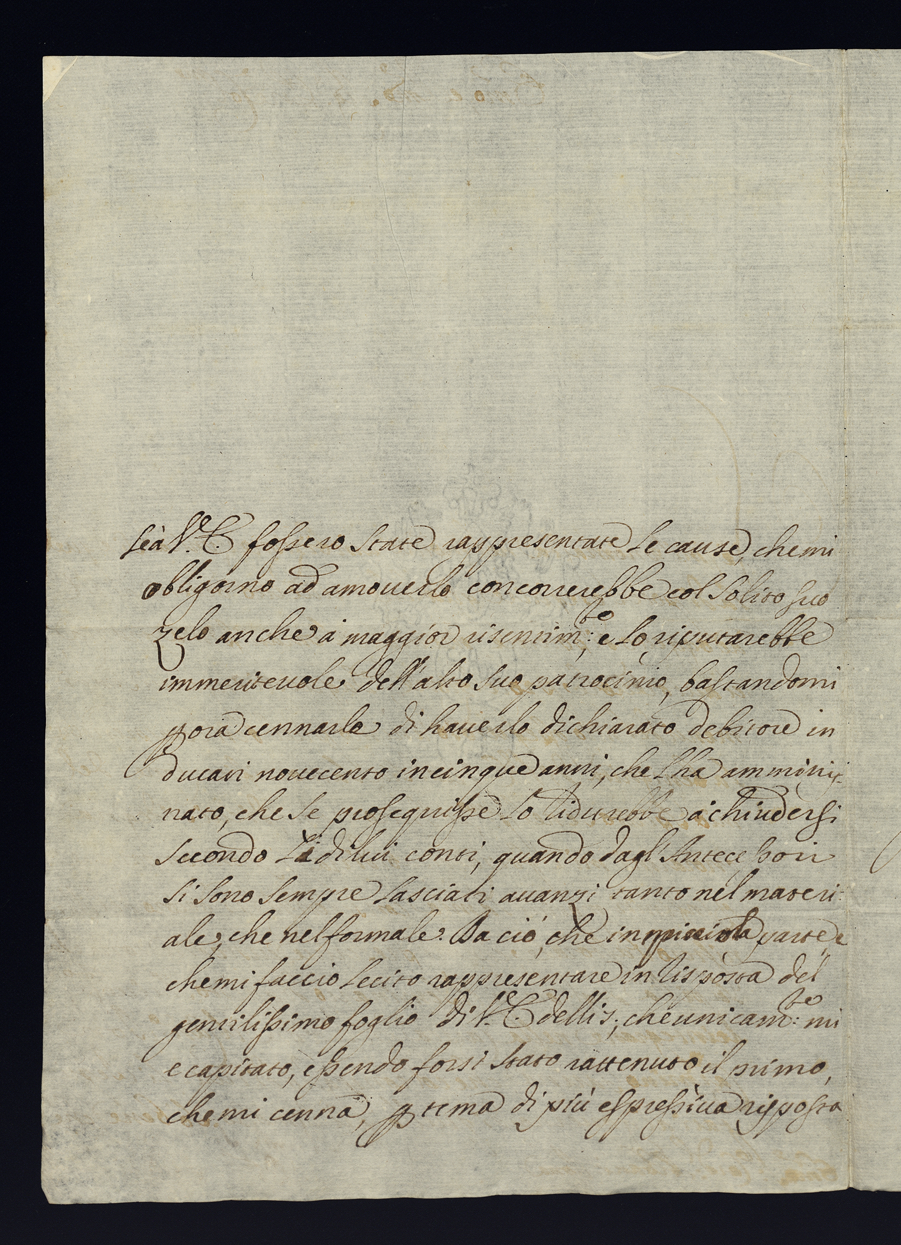 se à V.E. fossero state rappresentate le cause, che mi
obligorno ad amouerlo concorrerebbe col solito suo
zelo anche à maggior risentim:to e lo riputarebbe
immeriteuole dell'alto suo patrocinio, bastandomi
p ora cennarle di hauerlo dichiarato debitore in
ducati nouecento in cinque anni, che l'ha ammini:
nato, che se proseguisse lo ridurebbe à chiudersi
secondo li di lui conti, quando dagl'Antecessori
si sono sempre lasciati auanzi tanto nel materi:
ale, che nel formale. Da ciò, che in piccola parte
che mi faccio lecito rappresentare in risposta del
gentilissimo foglio di V.E. delli, che unicam:to mi
e capitato, essendo forsi stato rattenuto il primo,
che mi cenna, p tema di più espressiua risposta